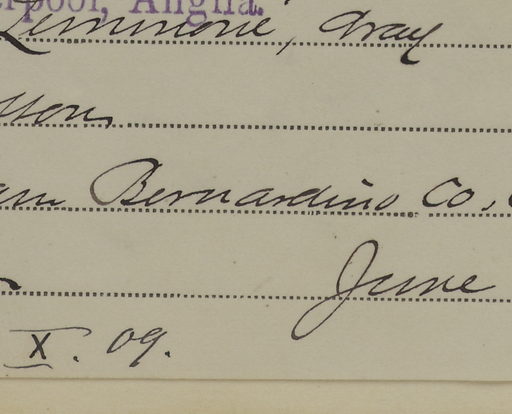 erpool, Anglia.
Lemmone, Gray
sson,
an Bernardino Co.,
June
X. 09.